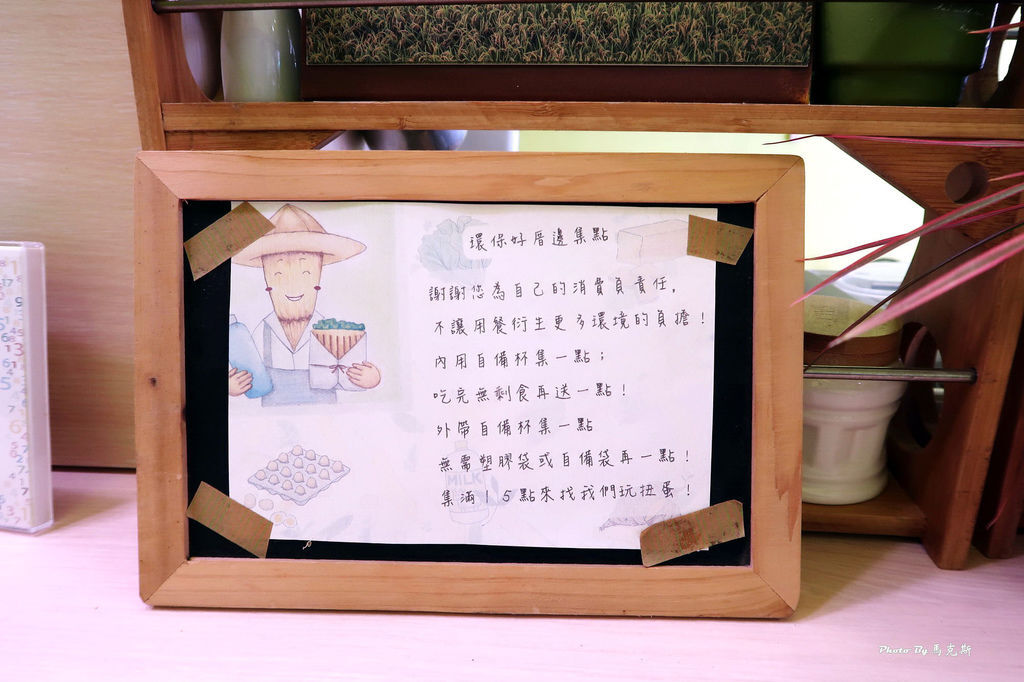 環保好厝邊集點
謝謝您為自己的消費負責任。
不讓用餐衍生更多環境的負擔！
內用自備杯集一點；
吃完無剩食再送一點！
外帶自備杯集一點
無需塑膠袋或自備袋再一點！
集滿15點來找我們玩扭蛋！
MILK
Photo By 馬克斯